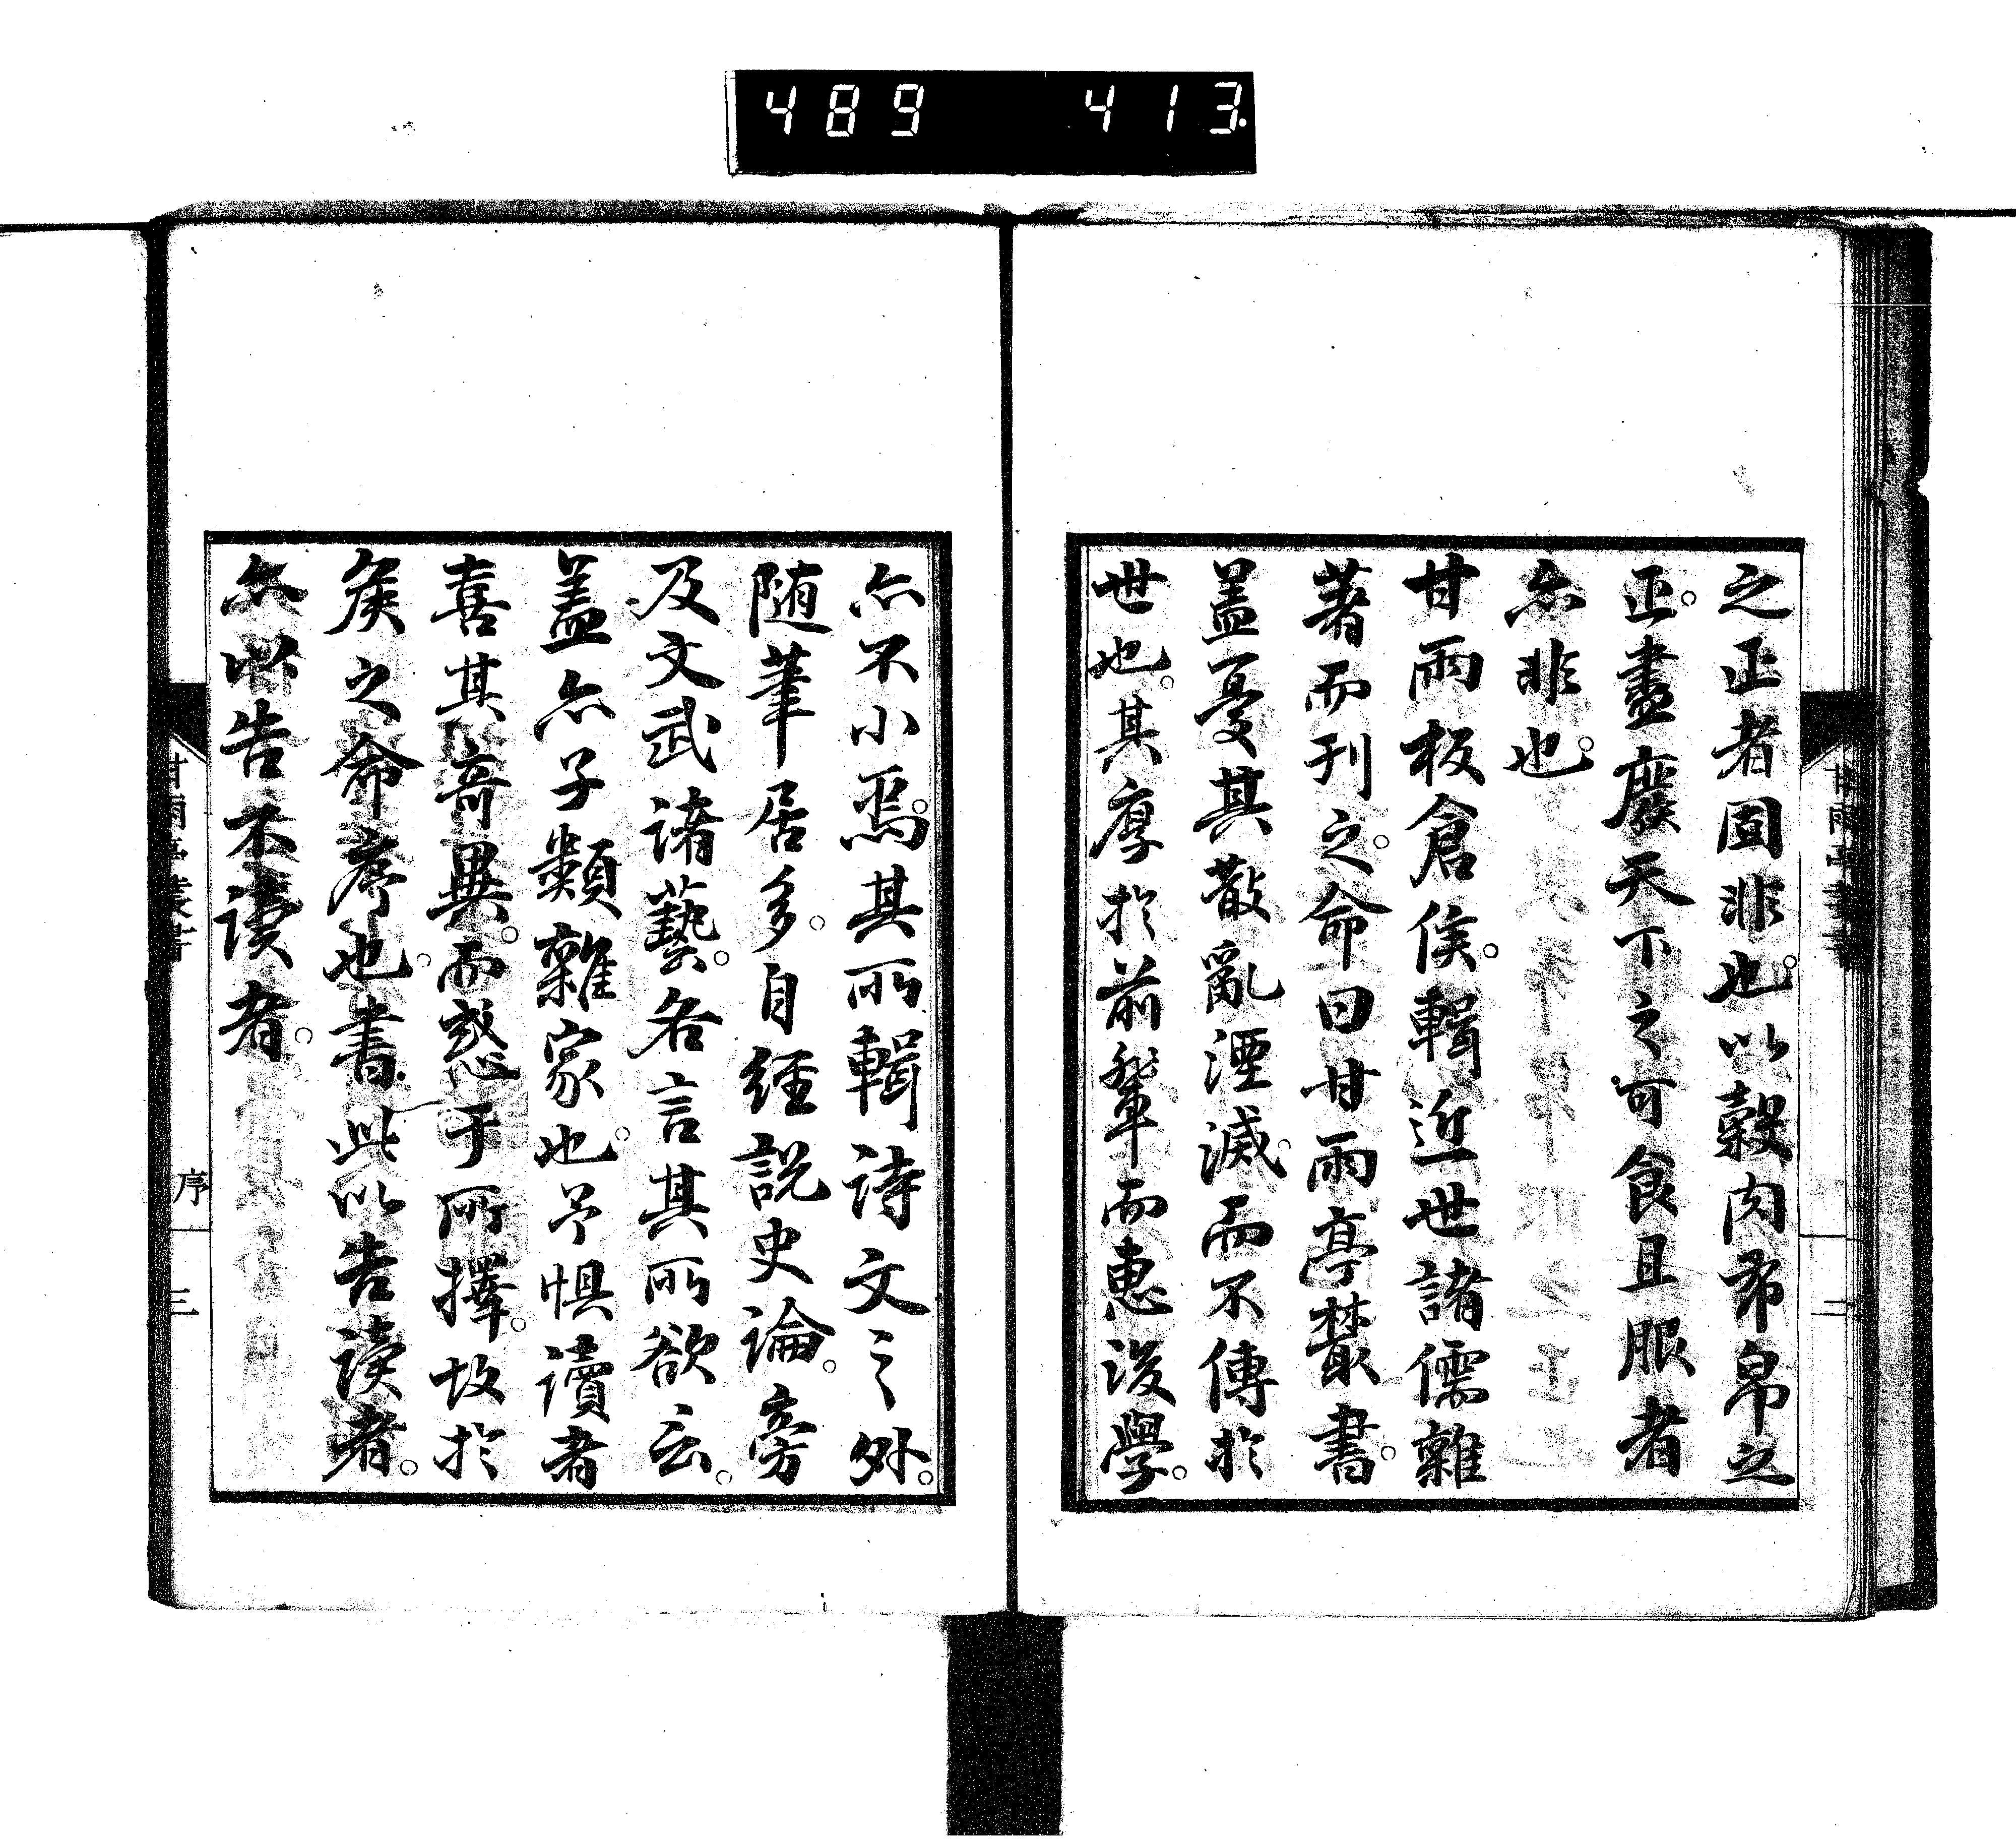 489 413
之正者固非也。以穀肉布帛之
正。盡廢天下之可食且服者
亦非也。
甘雨板倉侯。輯近世諸儒雜
著而刊之。命曰甘雨亭叢書。
蓋憂其散亂湮滅。而不傳於
世也。其厚於前輩而惠後學。
亦不小焉。其所輯詩文之外。
随筆居多。自經說史論。旁
及文武諸藝。各言其所欲云。
蓋亦子類雜家也。予惧讀者
喜其奇異。而惑于所擇。故於
矦之命序也。書此以告读者。
亦以告不读者。
甘雨亭叢書
序
三